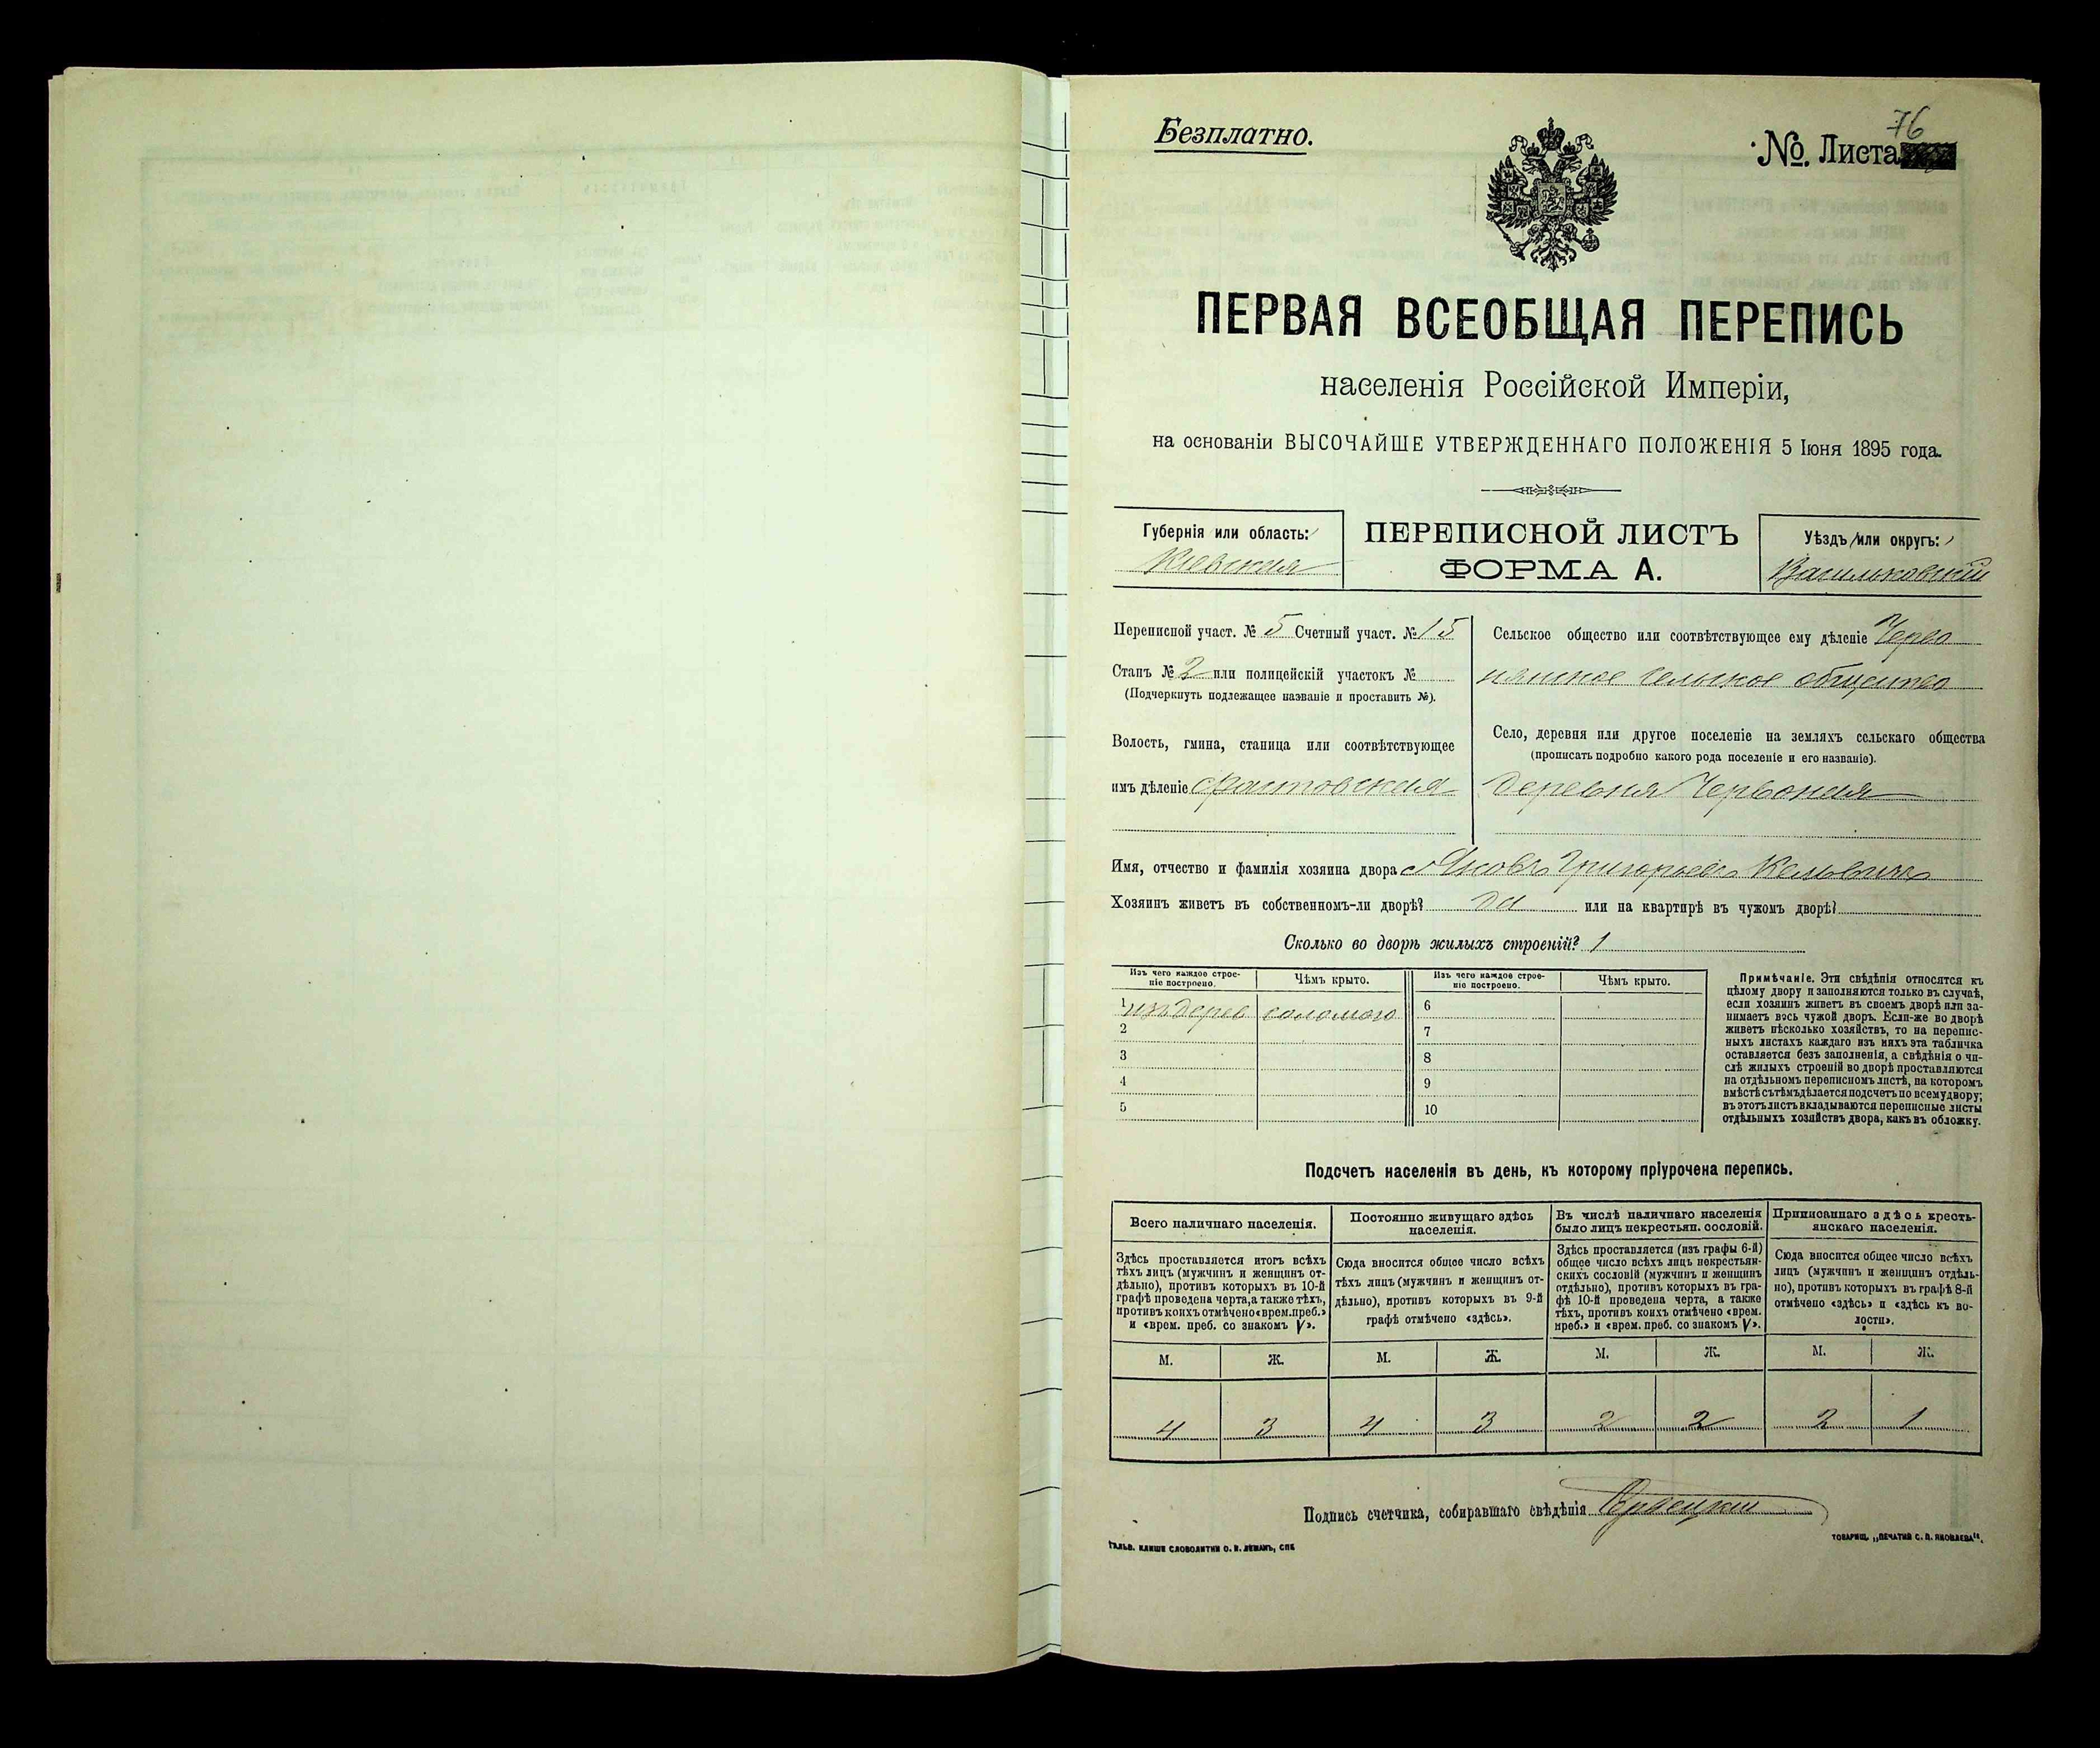 Безплатно.
76
№. Листа
ПЕРВАЯ ВСЕОБЩАЯ ПЕРЕПИСЬ
населенія Россійской Имперіи,
на основаніи ВЫСОЧАЙШЕ УТВЕРЖДЕННАГО ПОЛОЖЕНІЯ 5 Іюня 1895 года.
Губернія или область:
Кіевская
ПЕРЕПИСНОЙ ЛИСТЪ
ФОРМА А.
Уѣздъ или округъ:
Васильковскій
Переписной участ. № 5 Счетный участ. № 15
Станъ № 2 или полицейскій участокъ №
(Подчеркнуть подлежащее названіе и проставить №).
Волость, гмина, станица или соотвѣтствующее
имъ дѣленіе Фастовская
Сельское общество или соотвѣтствующее ему дѣленіе Черво
нянское сельское общество
Село, деревня или другое поселеніе на земляхъ сельскаго общества
(прописать подробно какого рода поселеніе и его названіе).
деревня Червоная
Имя, отчество и фамилія хозяина двора Яковъ Григорьевъ
Хозяинъ живетъ въ собственномъ-ли дворѣ? да или на квартирѣ въ чужомъ дворѣ?
Сколько во дворѣ жилыхъ строеній? 1
Изъ чего каждое строе-
ніе построено.
Чѣмъ крыто.
Изъ чего каждое строе-
ніе построено.
Чѣмъ крыто.
1 изъ дерев соломою 6
2 7
3 8
4 9
5 10
Примѣчаніе. Эти свѣдѣнія относятся къ
цѣлому двору и заполняются только въ случаѣ,
если хозяинъ живетъ въ своемъ дворѣ или за-
нимаетъ весь чужой дворъ. Если-же во дворѣ
живетъ нѣсколько хозяйствъ, то на перепис-
ныхъ листахъ каждаго изъ нихъ эта табличка
оставляется безъ заполненія, а свѣдѣнія о чи-
слѣ жилыхъ строеній во дворѣ проставляются
на отдѣльномъ переписномъ листѣ, на которомъ
вмѣстѣ съ тѣмъ дѣлается подсчетъ по всему двору;
въ этотъ листъ вкладываются переписные листы
отдѣльныхъ хозяйствъ двора, какъ въ обложку.
Подсчетъ населенія въ день, къ которому пріурочена перепись.
Всего наличнаго населенія.
Здѣсь проставляется итогъ всѣхъ
тѣхъ лицъ (мужчинъ и женщинъ от-
дѣльно), противъ которыхъ въ 10-й
графѣ проведена черта, а также тѣхъ,
противъ коихъ отмѣчено «врем. преб.»
и «врем. преб. со знакомъ V».
Постоянно живущаго здѣсь
населенія.
Сюда вносится общее число всѣхъ
тѣхъ лицъ (мужчинъ и женщинъ от-
дѣльно), противъ которыхъ въ 9-й
графѣ отмѣчено «здѣсь».
Въ числѣ наличнаго населенія
было лицъ некрестьян. сословій.
Здѣсь проставляется (изъ графы 6-й)
общее число всѣхъ лицъ некрестьян-
скихъ сословій (мужчинъ и женщинъ
отдѣльно), противъ которыхъ въ гра-
фѣ 10-й проведена черта, а также
тѣхъ, противъ коихъ отмѣчено «врем.
преб.» и «врем. преб. со знакомъ V».
Приписаннаго здѣсь кресть-
янскаго населенія.
Сюда вносится общее число всѣхъ
лицъ (мужчинъ и женщинъ отдѣль-
но), противъ которыхъ въ графѣ 8-й
отмѣчено «здѣсь» и «здѣсь къ во-
лости».
М. Ж. М. Ж. М. Ж. М. Ж.
4 3 4 3 2 2 2 1
Подпись счетчика, собиравшаго свѣдѣнія
ГАЛЬВ. КЛИШЕ СЛОВОЛИТНИ О. И. ЛЕМАНЪ, СПБ
ТОВАРИЩ. „ПЕЧАТНЯ С. П. ЯКОВЛЕВА“.